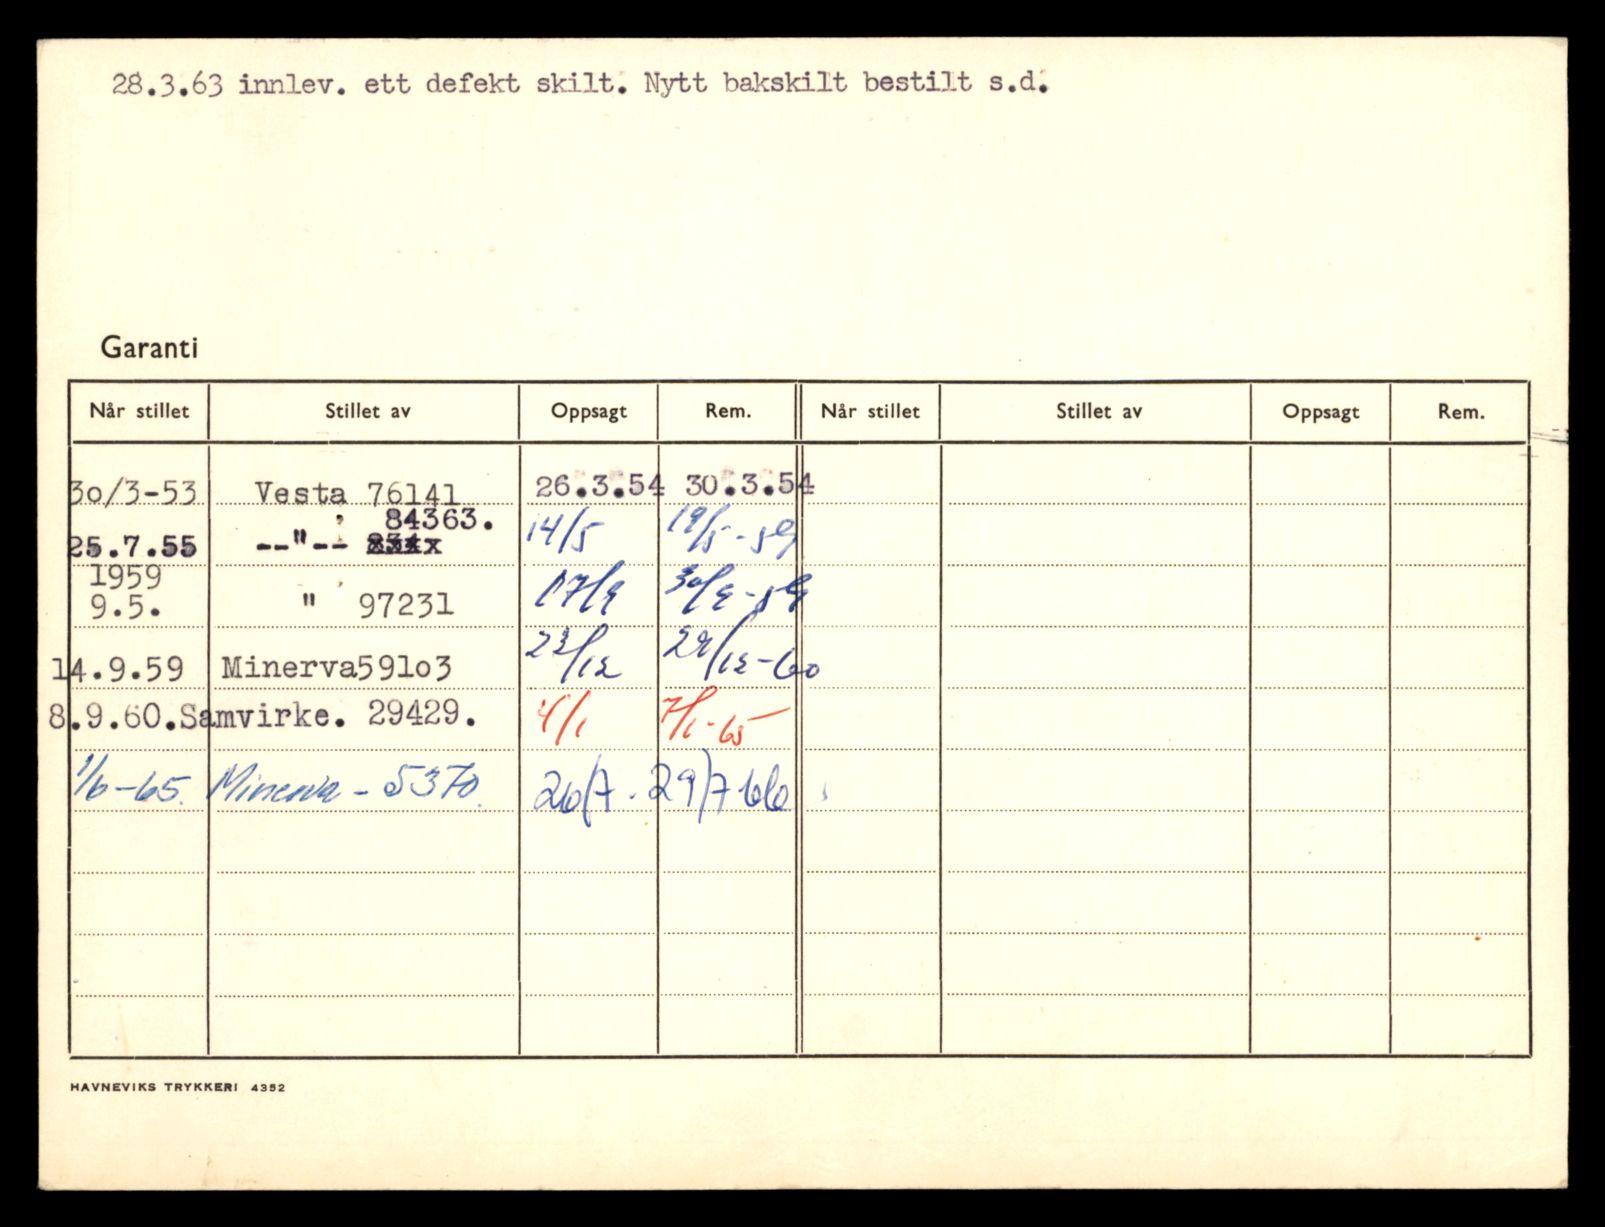 28.3.63 innlev. ett defekt skilt. Nytt bakskilt bestilt s.d.
Garanti
Når stillet Stillet av Oppsagt Rem. Når stillet Stillet av Oppsagt Rem.
3o/3-53 Vesta 76141 26.3.54 30.3.54
84363.
25.7.55 --"-- 14/5 19/5-59
1959
9.5. " 97231 17/9 30/9-59
14.9.59 Minerva591o3 23/12 29/12-60
8.9.60. Samvirke. 29429. 4/1 7/1-65
1/6-65. Minerva - 5370. 26/7. 29/7-66
HAVNEVIKS TRYKKERI 4352